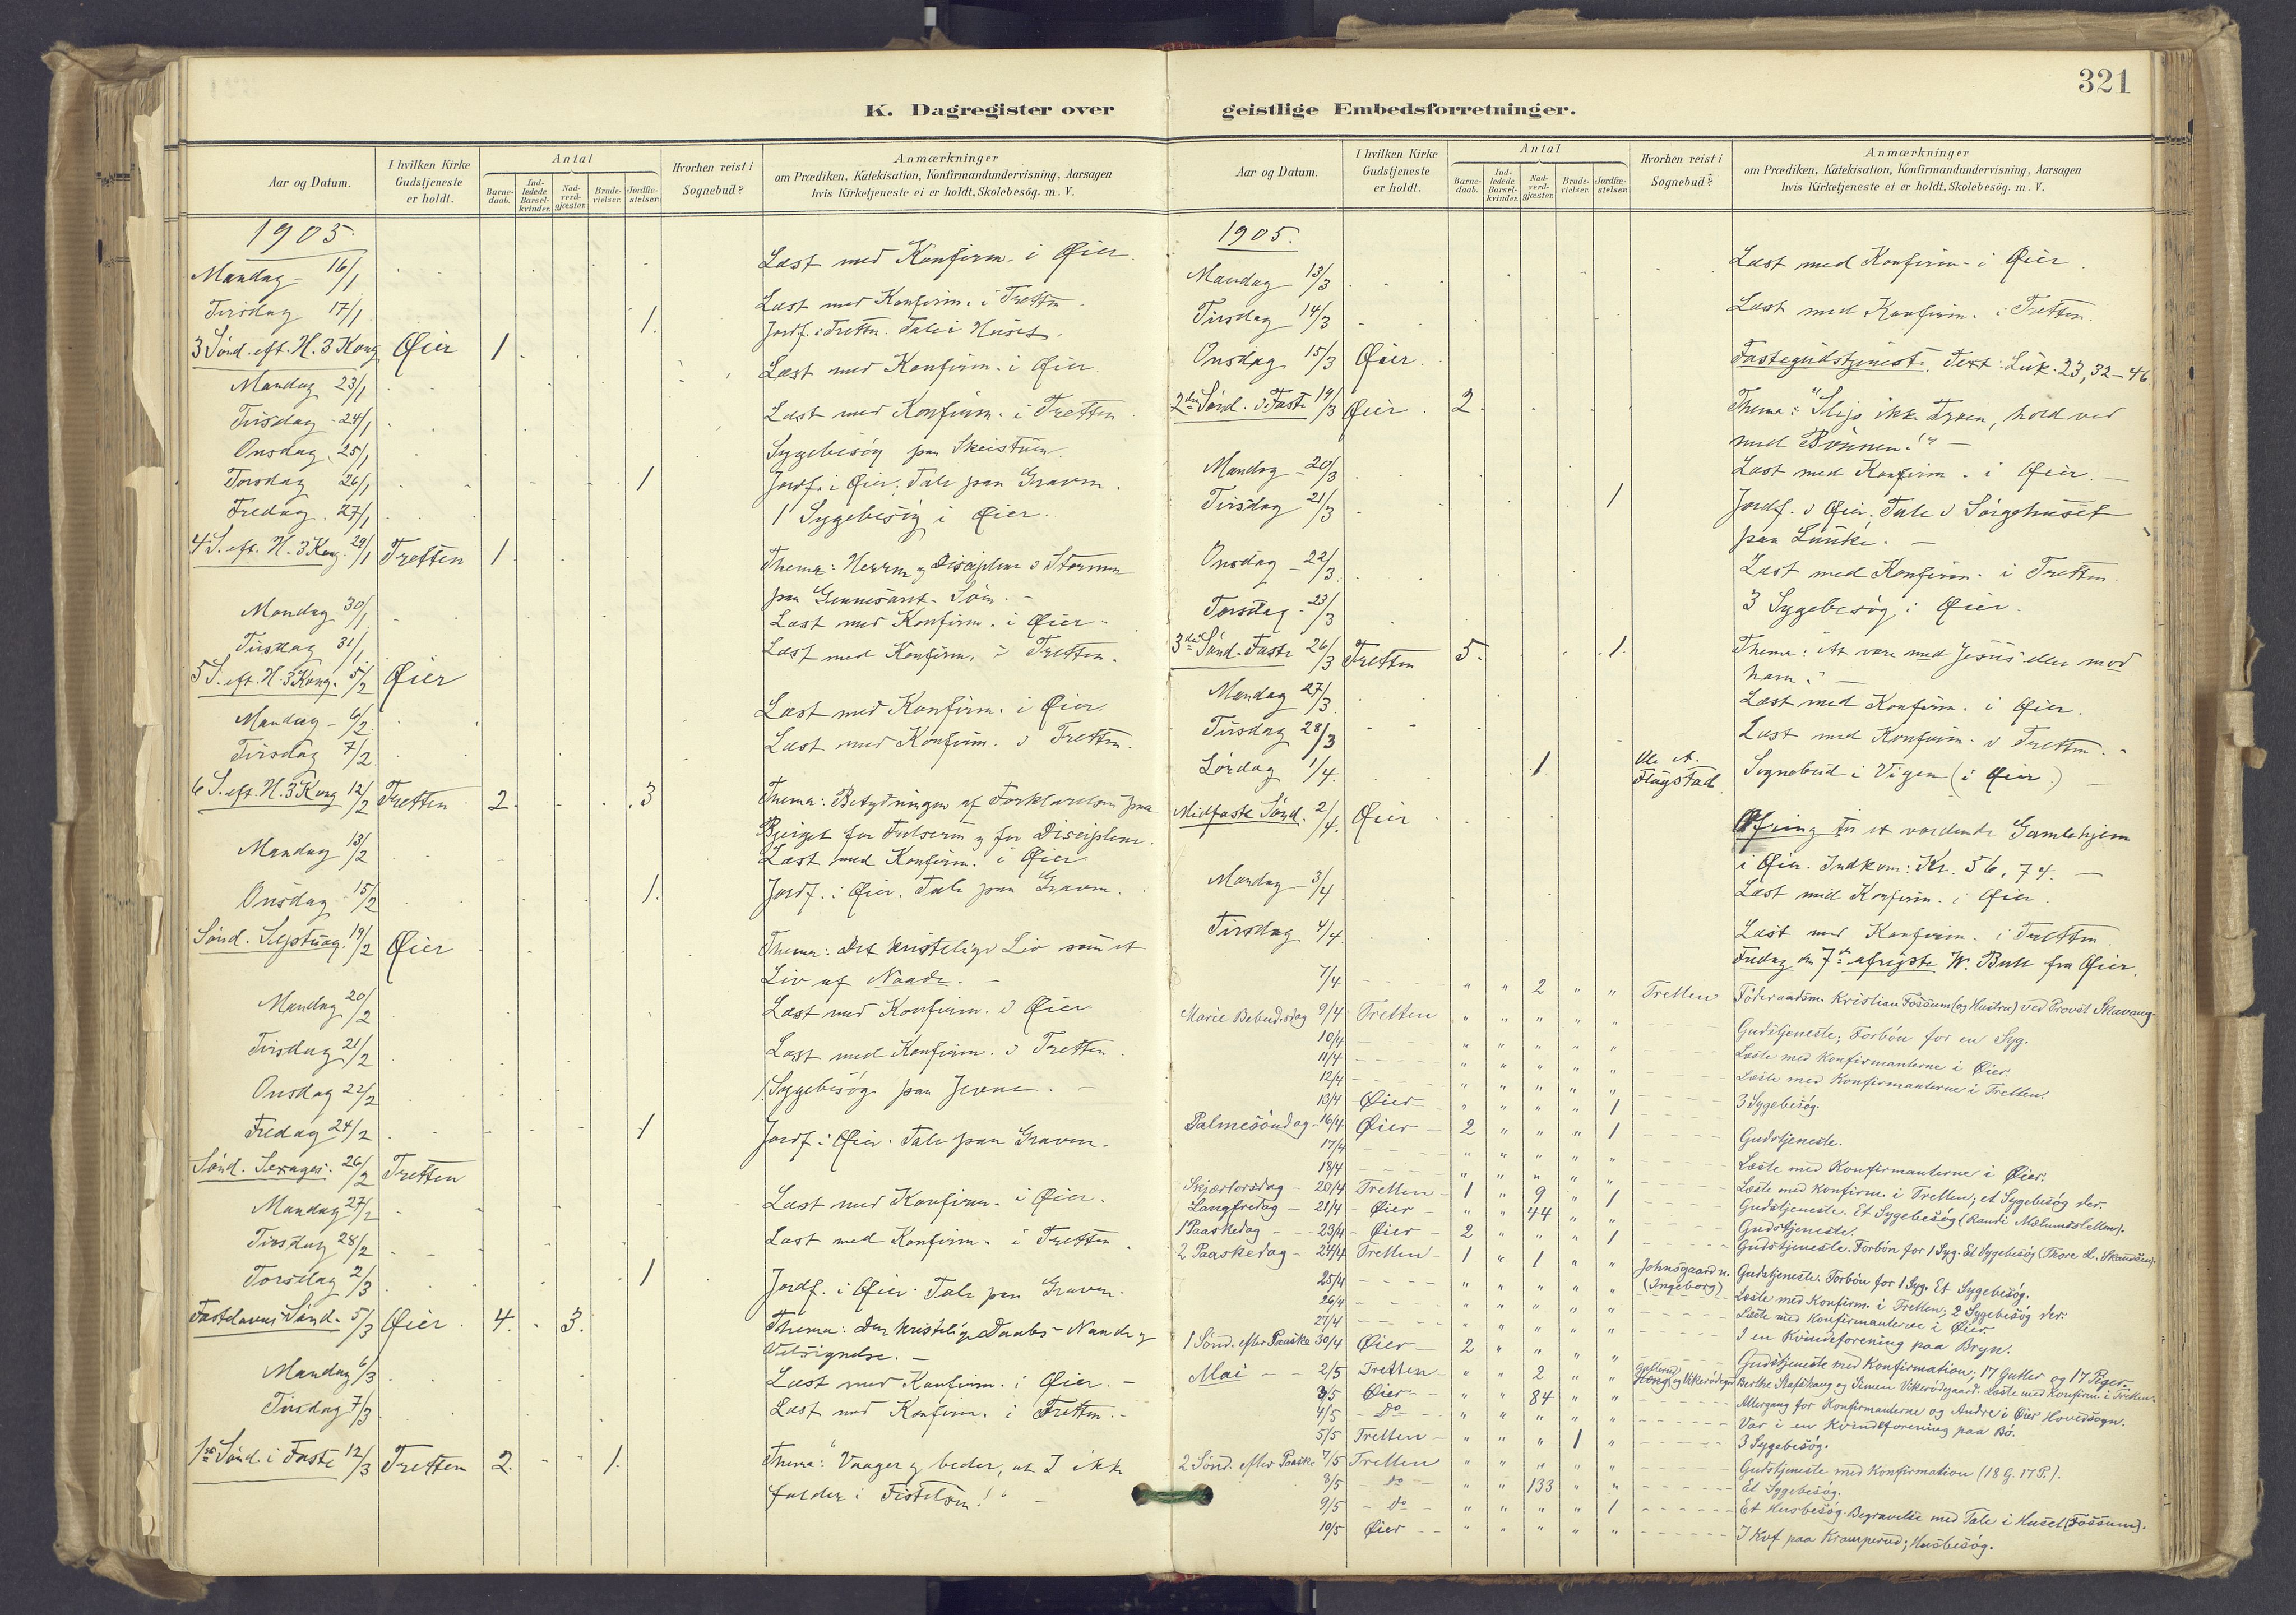 321
K. Dagregister over geistlige Embedsforretninger.
Aar og Datum. I hvilken Kirke Gudstjeneste er holdt. Antal Barnedaab. Indledede Barselkvinder. Nadverdgjæster. Brudevielser. Jordfæstelser. Hvorhen reist i Sognebud? Anmærkninger om Prædiken, Katekisation, Konfirmandundervisning, Aarsagen hvis Kirketjeneste ei er holdt, Skolebesög. m. V.
1905
Mandag 16/1 Læst med Konfirm. i Øier.
Tirsdag 17/1 1. Læst med Konfirm. i Tretten
Jordf. i Tretten. Tale i Huset.
3 Sönd. eft. H. 3 Kong Øier 1.
Mandag 23/1 Læst med Konfirm. i Øier.
Tirsdag 24/1 Læst med Konfirm. i Tretten
Onsdag 25/1 Sygebesög paa Skeistuen.
Torsdag 26/1 1 Jordf. i Øier. Tale paa Graven.
Fredag 27/1 1 Sygebesög i Øier.
4 S. eft. H. 3 Kong. 29/1 Tretten 1 Thema: Herren og Disciplene i Stormen
paa Gennesaret Søen. -
Mandag 30/1 Læst med Konfirm. i Øier
Tirsdag 31/1 Læst med Konfirm. i Tretten.
5 S. eft. H. 3 Kong. 5/2 Øier
Mandag 6/2 Læst med Konfirm. i Øier.
Tirsdag 7/2 Læst med Konfirm. i Tretten.
6 S. eft. H. 3 Kong 12/2 Tretten 2. 3 Thema: Betydningen af Forklarelsen paa
Bjerget for Frelseren og for Disciplene.
Mandag 13/2 Læst med Konfirm. i Øier
Onsdag 15/2 1. Jordf. i Øier. Tale paa Graven.
Sönd. Septuag. 19/2 Øier Thema: Det kristelige Liv som et
Liv af Naade. -
Mandag 20/2 Læst med Konfirm. i Øier.
Tirsdag 21/2 Læst med Konfirm. i Tretten.
Onsdag 22/2 1 Sygebesög paa Jevne. -
Fredag 24/2 1 Jordf. i Øier. Tale paa Graven.
Sönd. Sexages. 26/2 Tretten
Mandag 27/2 Læst med Konfirm. i Øier.
Tirsdag 28/2 Læst med Konfirm. i Tretten.
Torsdag 2/3 1 Jordf. i Øier. Tale paa Graven.
Fastelavns Sönd. 5/3 Øier 4. 3. Thema: Den kristelige Daabs Naade og
Velsignelse. -
Mandag 6/3 Læst med Konfirm. i Øier. -
Tirsdag 7/3 Læst med Konfirm. i Tretten. -
1ste Sönd. i Faste 12/3 Tretten 2. 1. Thema: "Vaager og beder, at I ikke
falder i Fristelsen!" -
Aar og Datum. I hvilken Kirke Gudstjeneste er holdt. Antal Barnedaab. Indledede Barselkvinder. Nadverdgjæster. Brudevielser. Jordfæstelser. Hvorhen reist i Sognebud? Anmærkninger om Prædiken, Katekisation, Konfirmandundervisning, Aarsagen hvis Kirketjeneste ei er holdt, Skolebesög. m. V.
1905.
Mandag 13/3 Læst med Konfirm. i Øier
Tirsdag 14/3 Læst med Konfirm. i Tretten.
Onsdag 15/3 Øier. Fastegudstjeneste. Text: Luk. 23, 32-46.
2den Sönd. i Faste 19/3 Øier. 2. Thema: "Slip ikke Troen, hold ved
med Bönnen!" -
Mandag 20/3 Læst med Konfirm. i Øier. -
Tirsdag 21/3 1 Jordf. i Øier. Tale i Sörgehuset
paa Lunke. -
Onsdag 22/3 Læst med Konfirm. i Tretten.
Torsdag 23/3 3 Sygebesög i Øier.
3die Sönd. Faste 26/3 Tretten 5. 1. Thema: At være med Jesus eller mod
ham. -
Mandag 27/3 Læst med Konfirm. i Øier.
Tirsdag 28/3 Læst med Konfirm. i Tretten.
Lördag 1/4. 1 Ole A. Flugstad Sognebud i Vigen (i Øier) -
Midfaste Sönd. 2/4. Øier Ofring for et vordende Gamlehjem
i Øier. Indkom: Kr. 56,74. -
Mandag 3/4 Læst med Konfirm. i Øier.
Tirsdag 4/4 Læst med Konfirm. i Tretten.
Fredag den 7de afreiste W. Bull fra Øier.
7/4 " " 2 " " Tretten Föderaadsm. Kristian Fossum (og Hustru) ved Provst Skavang.
Marie Bebud.sdag 9/4 Tretten " " " " " Gudstjeneste; Forbön for en Syg.
10/4 " " " " " Læste med Konfirmanterne i Øier.
11/4 " " " " " Læste med Konfirmanterne i Tretten.
12/4 " " " " " 3 Sygebesög.
13/4 Øier " " " " 1
Palmesöndag 16/4 Øier 2 " " " 1 Gudstjeneste.
17/4 " " " " " Læste med Konfirmanterne i Øier.
18/4 " " " " " Læste med Konfirm. i Tretten; et Sygebesög der.
Skjærtorsdag 20/4 Tretten 1 " 9 " 1 Gudstjeneste. Et Sygebesög (Randi Mælumssletten).
Langfredag 21/4 Øier " " 44 " " Gudstjeneste.
1 Paaskedag 23/4 Øier 2 " " " 1 Gudstjeneste. Forbön for 1 Syg. Et Sygebesög (Thore L. Skaudsen).
2 Paaskedag 24/4 Tretten 1 " 1 " " Johnsgaard n. (Ingeborg) Gudstjeneste. Forbön for 1 Syg. Et Sygebesög.
25/4 " " " " " Læste med Konfirm. i Tretten; 2 Sygebesög der.
26/4 " " " " " Læste med Konfirmanterne i Øier.
27/4 " " " " " I en Kvindeforening paa Bryn.
1 Sönd. efter Paaske 30/4 Øier 2 " " " " Gudstjeneste med Konfirmation; 17 Gutter og 17 Piger.
Mai 2/5 Tretten " " 2 " " Berthe Stafshaug og Simen Vikerödegaard. Læste med Konfirm. i Tretten.
3/5 Øier " " 84 " " Altergang for Konfirmanterne og Andre i Øier Hovedsogn.
4/5 Do " " " " " Var i en Kvindeforening paa Bö.
5/5 Tretten " " " 1 " 3 Sygebesög.
2 Sönd. efter Paaske 7/5 Tretten " " " " " Gudstjeneste med Konfirmation (18 G. 17 P.).
8/5 do " " 133 " " Et Sygebesög.
9/5 do " " " " 1 Et Husbesög. Begravelse med Tale i Huset (Fossum).
10/5 Øier " " " " " I Kvf paa Kramperud; Husbesög.